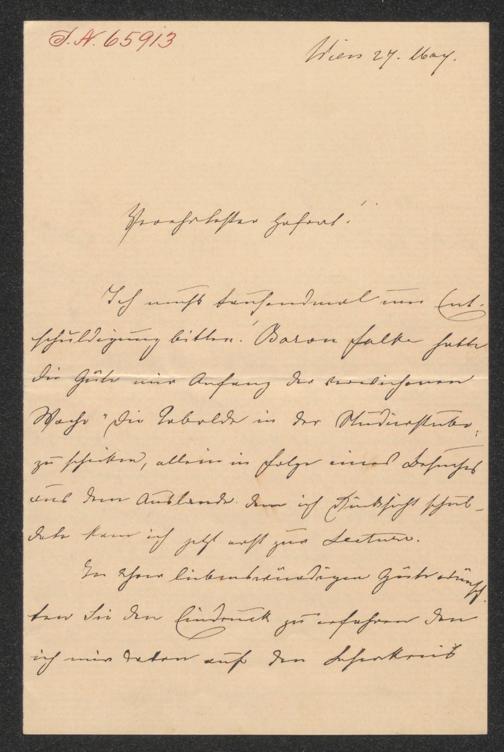 J. N. 65913
Wien 27. May.
Verehrtester Hofrat!
Ich muß tausendmal um Ent-
schuldigung bitten. Baron Falke hatte
die Güte mir Anfang der verwichenen
Woche "Die Kobolde in der Studierstube"
zu schicken, allein in Folge eines Besuches
aus dem Auslande dem ich Rücksicht schul-
dete kam ich jetzt erst zur Lecture.
In Ihrer liebenswürdigen Güte wünsch-
ten Sie den Eindruck zu erfahren den
ich mir davon auf den Leserkreis